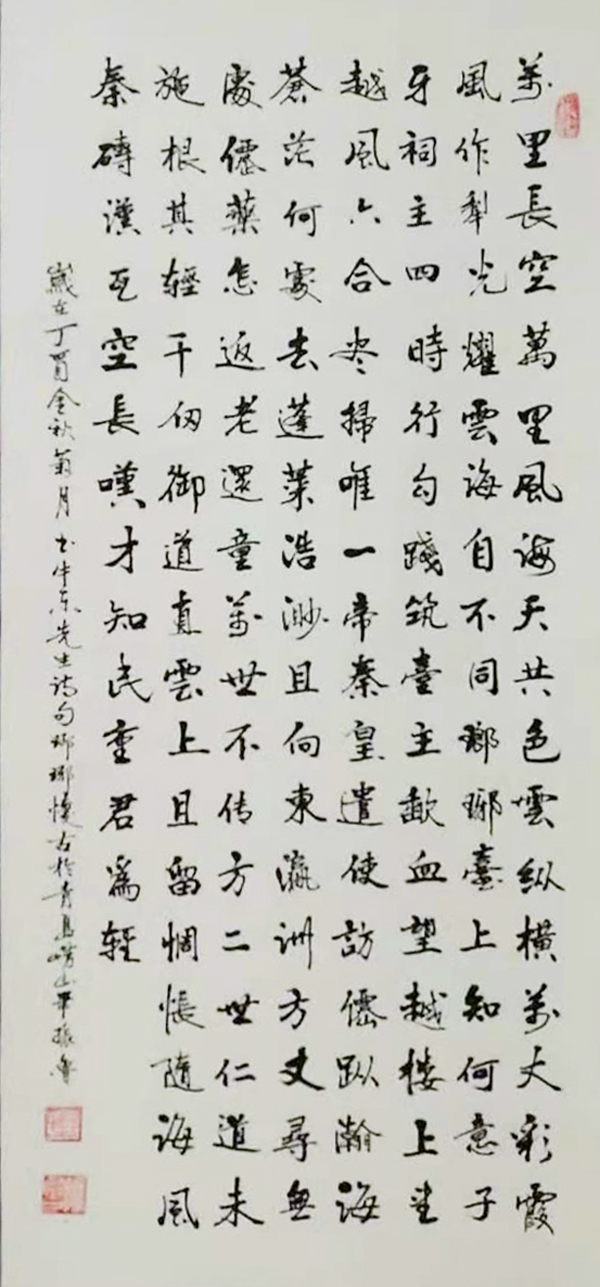 萬里長空萬里風海天共色雲纵横萬丈彩霞
風作犁光耀雲海自不同瑯琊臺上知何意子
牙祠主四時行勾踐筑臺主歃血望越楼上望
越風六合尽掃唯一帝秦皇遣使訪僊踪瀚海
蒼茫何處去蓬莱浩渺且向東瀛洲方丈尋無
處僊藥怎返老還童萬世不传方二世仁道未
施根其輕千仞御道直雲上且留惆悵随海風
秦磚漢瓦空長嘆才知民重君為輕
歲在丁酉金秋菊月書牛东先生詩句瑯琊懷古於青島嶗山平振魯